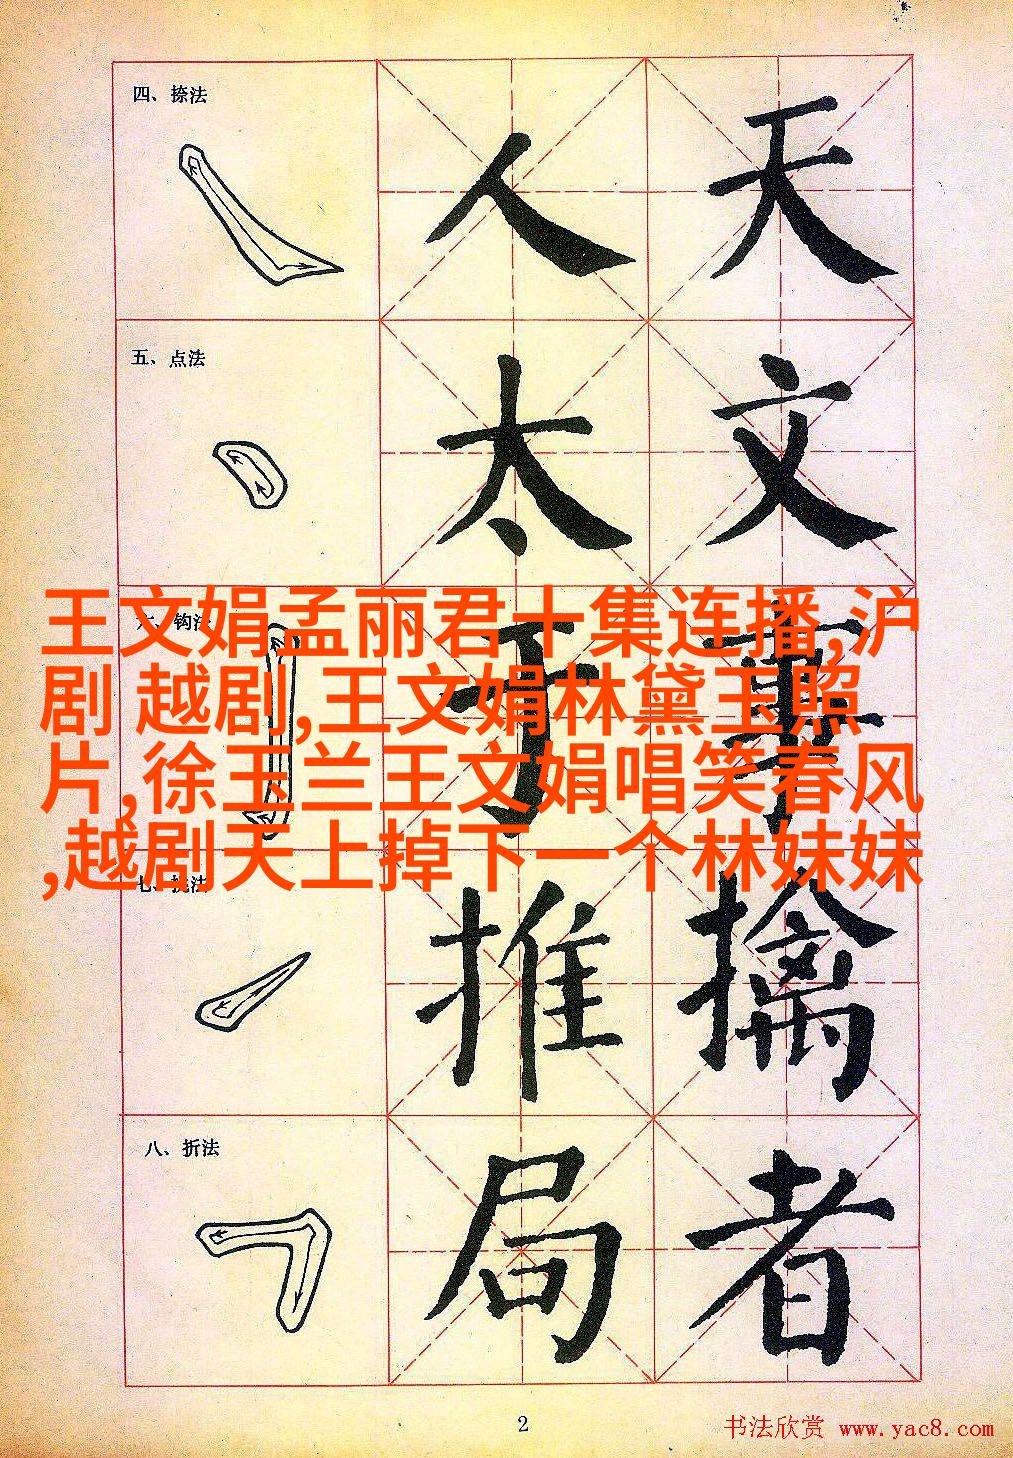 四、捺法
人 天
五、点法
太 文
王文娟孟丽君十集连播,沪
剧 越剧,王文娟林黛玉照
片,徐玉兰王文娟唱笑春风
,越剧天上掉下一个林妹妹
六、钩法
于
七、挑法
推 擒
八、折法
局 者
2
书法欣赏 www.yac8.com